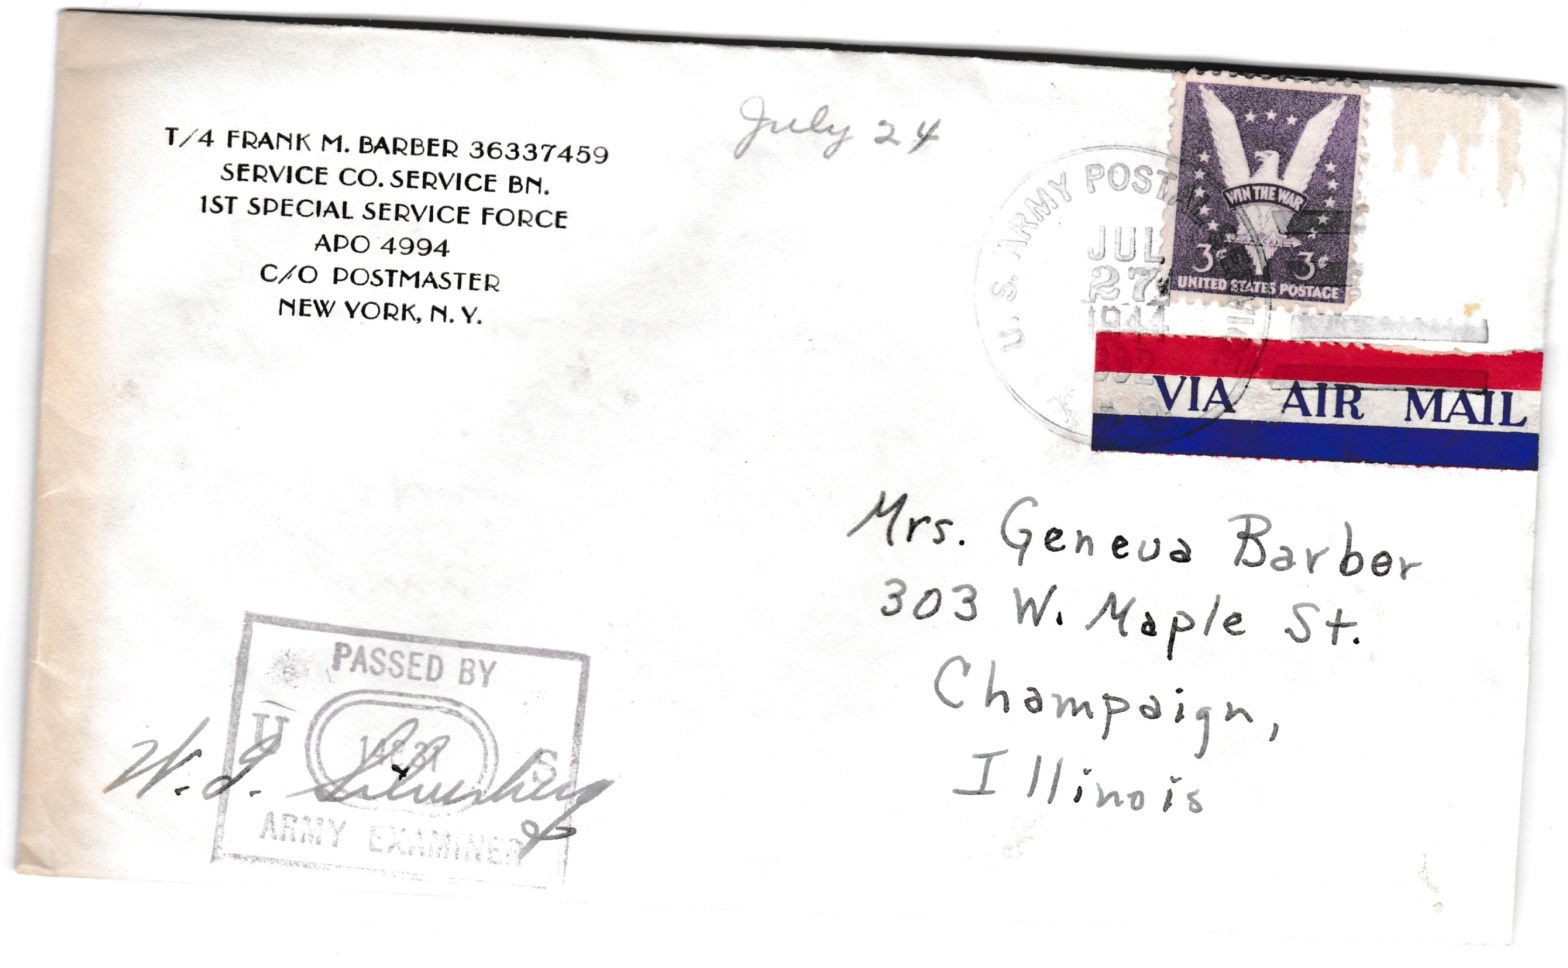 T/4 FRANK M. BARBER 36337459
SERVICE CO. SERVICE BN.
1ST SPECIAL SERVICE FORCE
APO 4994
C/O POSTMASTER
NEW YORK, N. Y.
July 24
U. S. ARMY POSTAL
JUL
27
1944
WIN THE WAR
3¢ 3¢
UNITED STATES POSTAGE
VIA AIR MAIL
Mrs. Geneva Barber
303 W. Maple St.
Champaign,
Illinois
PASSED BY
U S
ARMY EXAMINER